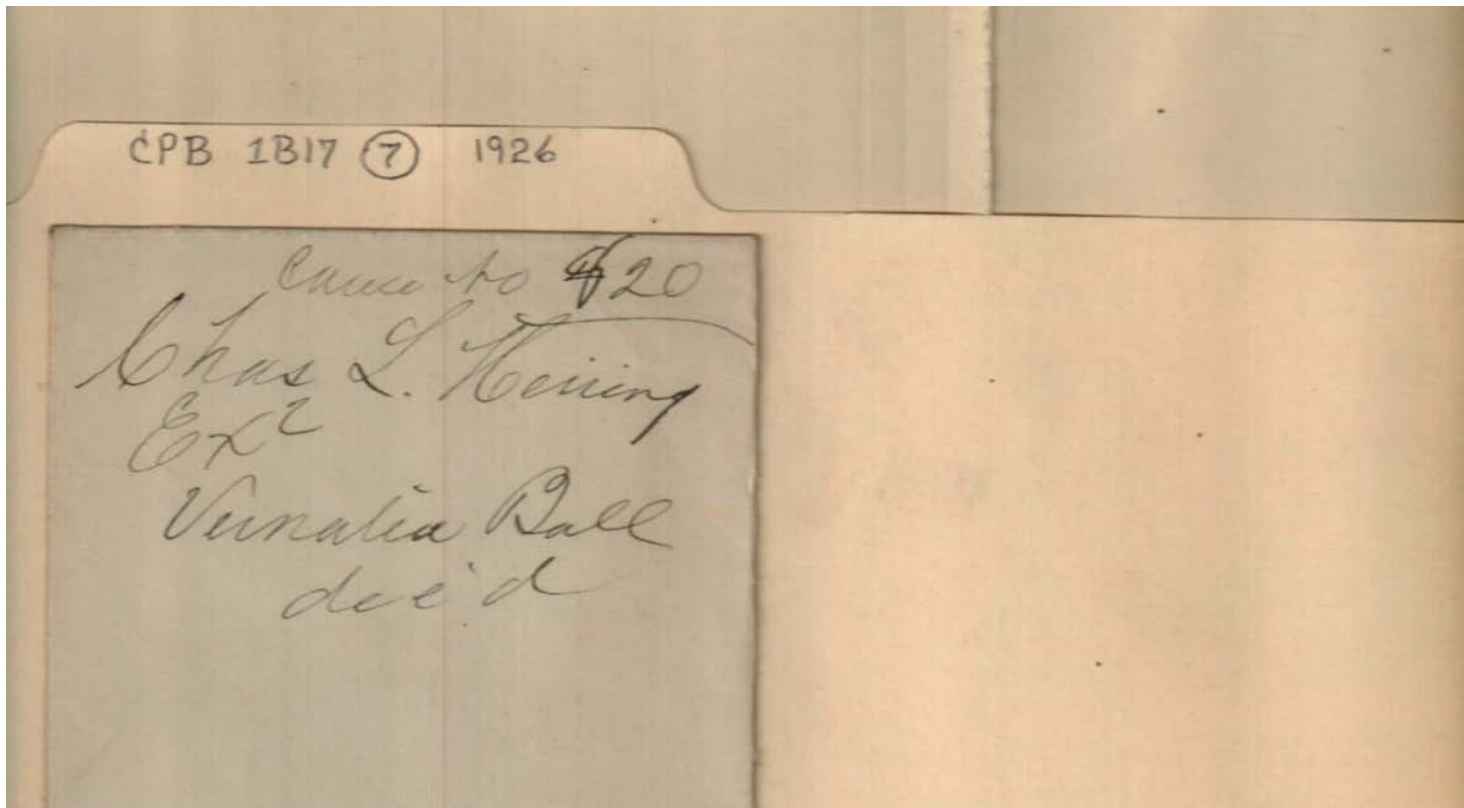 CPB 1B17 7 1926
Came to $20
Chas L. Herring
Exr
Vernalia Ball
dec'd